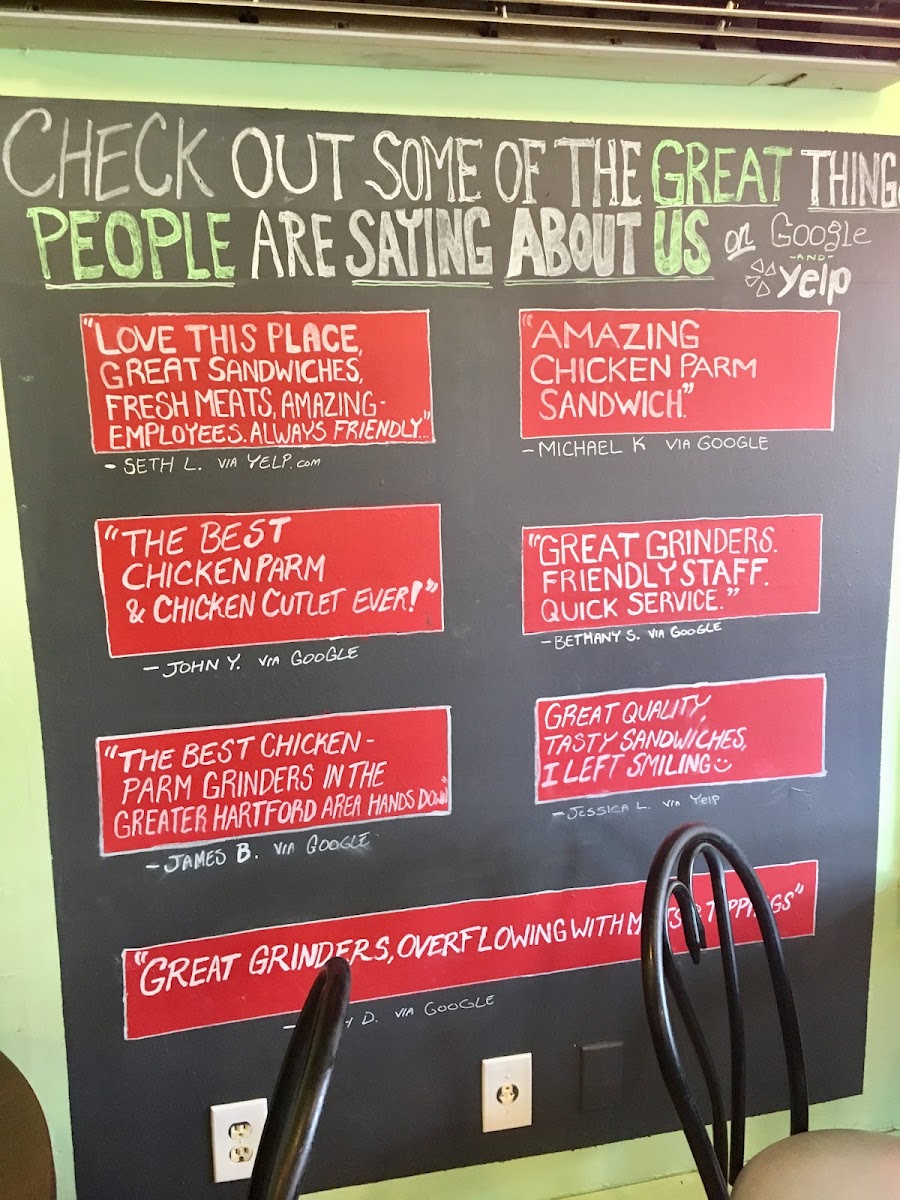 CHECK OUT SOME OF THE GREAT THING
PEOPLE ARE SAYING ABOUT US on Google
-AND-
yelp
"LOVE THIS PLACE,
GREAT SANDWICHES,
FRESH MEATS, AMAZING-
EMPLOYEES. ALWAYS FRIENDLY..."
- SETH L. VIA YELP.com
"AMAZING
CHICKEN PARM
SANDWICH."
- MICHAEL K VIA GOOGLE
"THE BEST
CHICKEN PARM
& CHICKEN CUTLET EVER!"
- JOHN Y. VIA GOOGLE
"GREAT GRINDERS.
FRIENDLY STAFF.
QUICK SERVICE."
- BETHANY S. VIA GOOGLE
"THE BEST CHICKEN-
PARM GRINDERS IN THE
GREATER HARTFORD AREA HANDS DOWN
- JAMES B. VIA GOOGLE
GREAT QUALITY,
TASTY SANDWICHES,
I LEFT SMILING☺
- JESSICA L. VIA Yelp
"GREAT GRINDERS, OVERFLOWING WITH
D. VIA GOOGLE